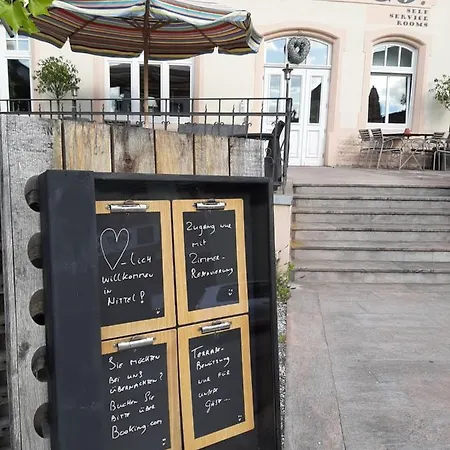 SELF
SERVICE ROOMS
♡_lich
willkommen
in
Nittel!
Zugang nur
mit
Zimmer-
Reservierung
Sie möchten
bei uns
übernachten?
Buchen Sie
bitte über
Booking.com
Terrassen-
Benutzung
nur für
unsere
Gäste...